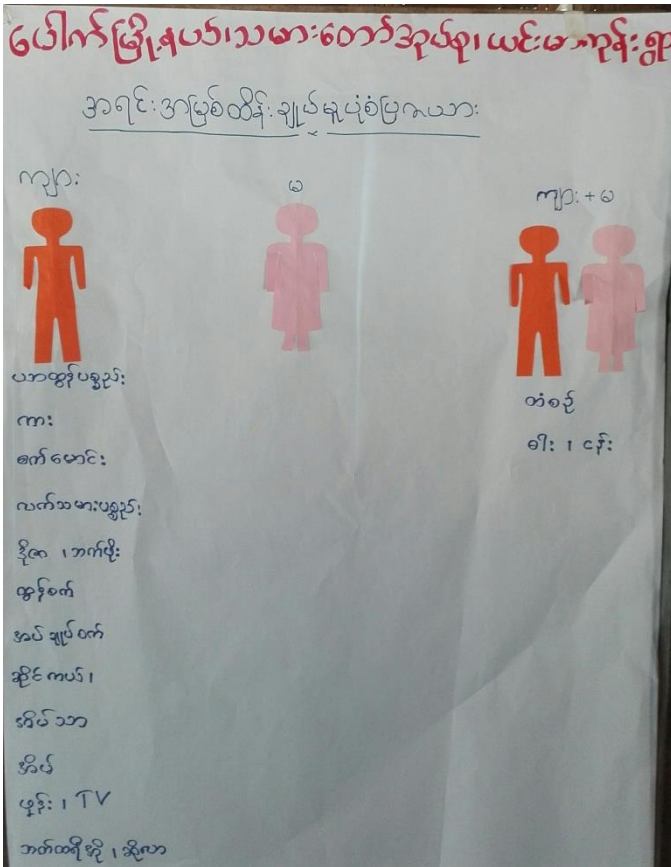 ပေါက်မြို့နယ်၊သမားတော်အုပ်စု၊ယင်းမာကုန်းရွာ
အရင်းအမြစ်ထိန်းချုပ်မှုပုံစံပြဇယား
ကျား
မ
ကျား + မ
ယာထွန်ပစ္စည်း
ကား
စက်မောင်း
လက်သမားပစ္စည်း
ဒိုဇာ ၊ဘက်ဖိုး
ထွန်စက်
အပ်ချုပ်စက်
ဆိုင်ကယ်၊
အိမ်သာ
အိမ်
ဖုန်း ၊ TV
ဘတ်ထရီအိုး ၊ ဆိုလာ
တံစဉ်
ဓါး ၊ ငန်း